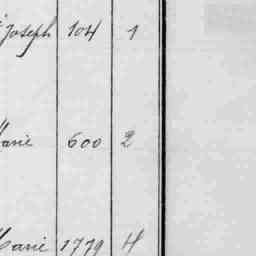 Joseph 104 1
Marie 600 2
Marie 1779 4